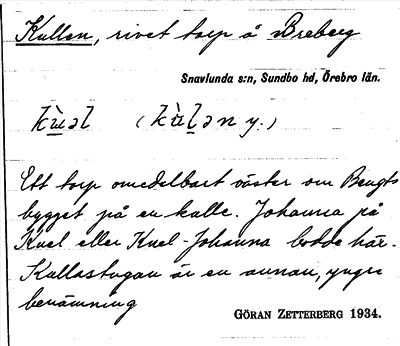 Kullen, rivet torp å Breberg
Snavlunda s:n, Sundbo hd, Örebro län.
kùəl (kùlən y.)
Ett torp omedelbart väster om Bengts
bygget på en kulle. Johanna på
Kuel eller Kuel-Johanna bodde här.
Kullastugan är en annan, yngre
benämning
GÖRAN ZETTERBERG 1934.